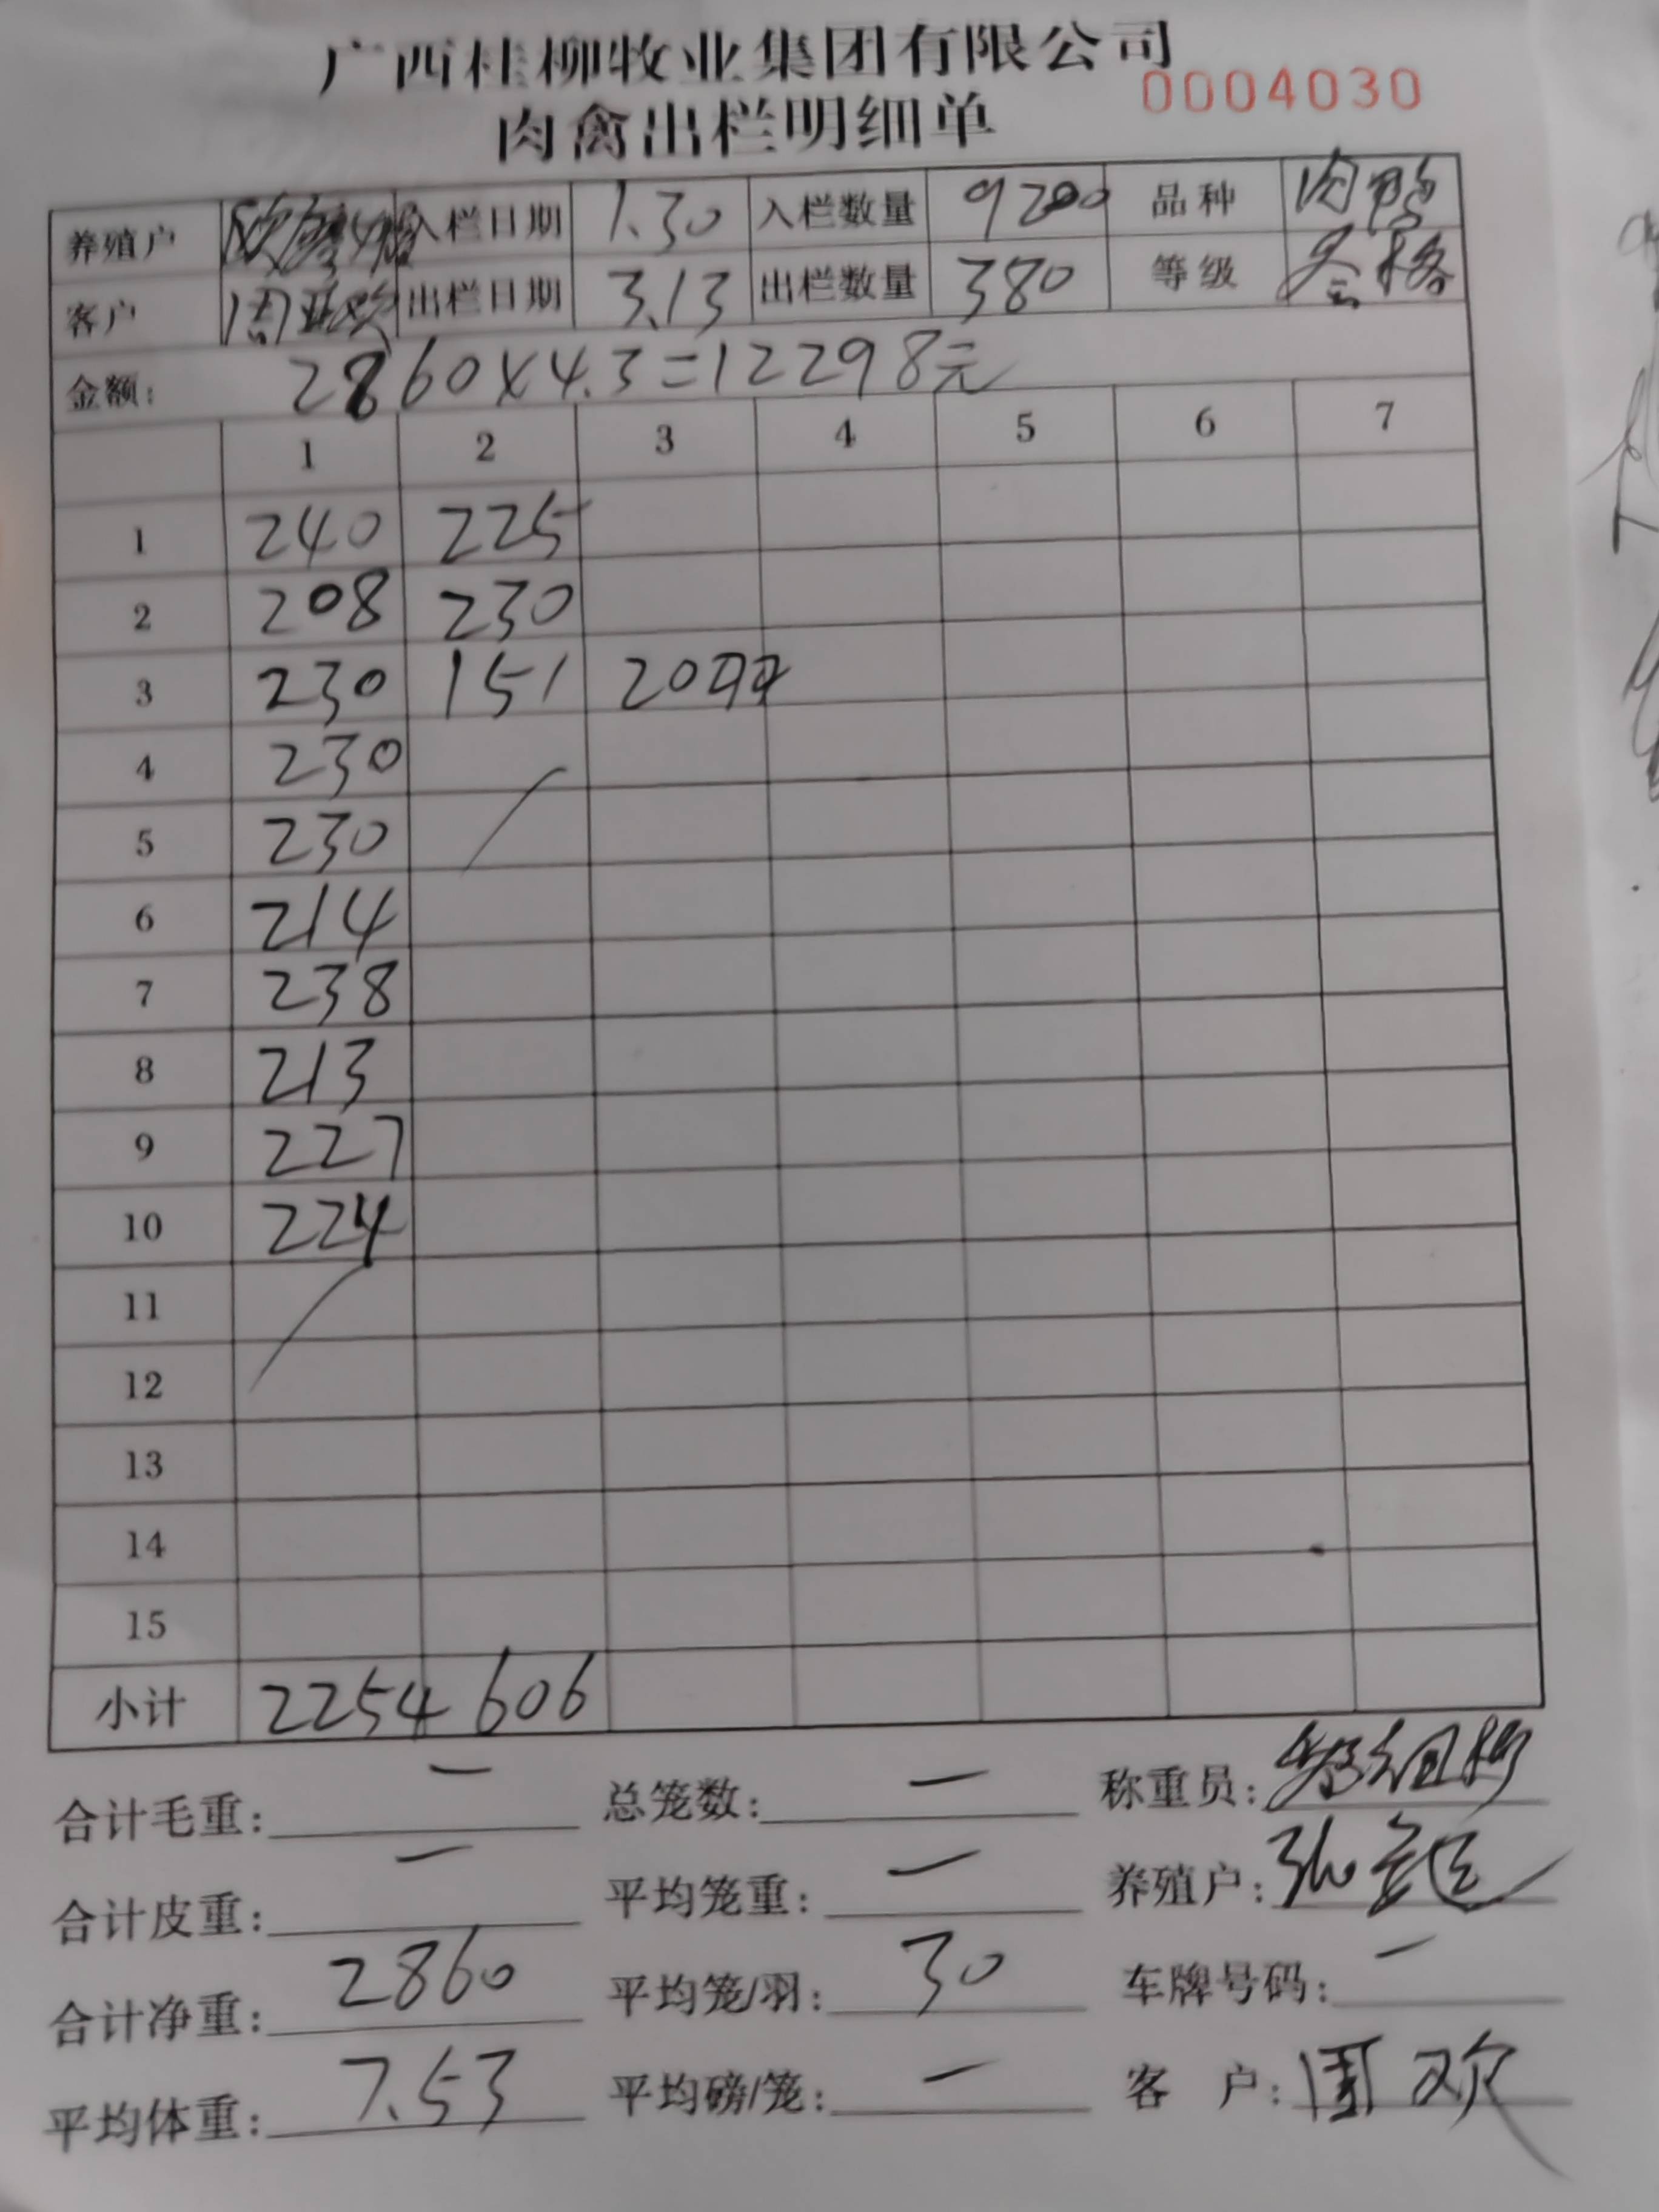 广西桂柳牧业集团有限公司
0004030
肉禽出栏明细单
养殖户 入栏日期 1.30 入栏数量 9200 品种 肉鸭
客户 周亚欢 出栏日期 3.13 出栏数量 380 等级 合格
金额: 2860×4.3=12298元
1 2 3 4 5 6 7
1 240 225
2 208 230
3 230 151 20只
4 230
5 230
6 214
7 238
8 213
9 227
10 224
11
12
13
14
15
小计 2254 606
合计毛重: — 总笼数: — 称重员:
合计皮重: — 平均笼重: — 养殖户:
合计净重: 2860 平均笼/羽: 30 车牌号码: —
平均体重: 7.53 平均磅/笼: — 客 户: 周欢